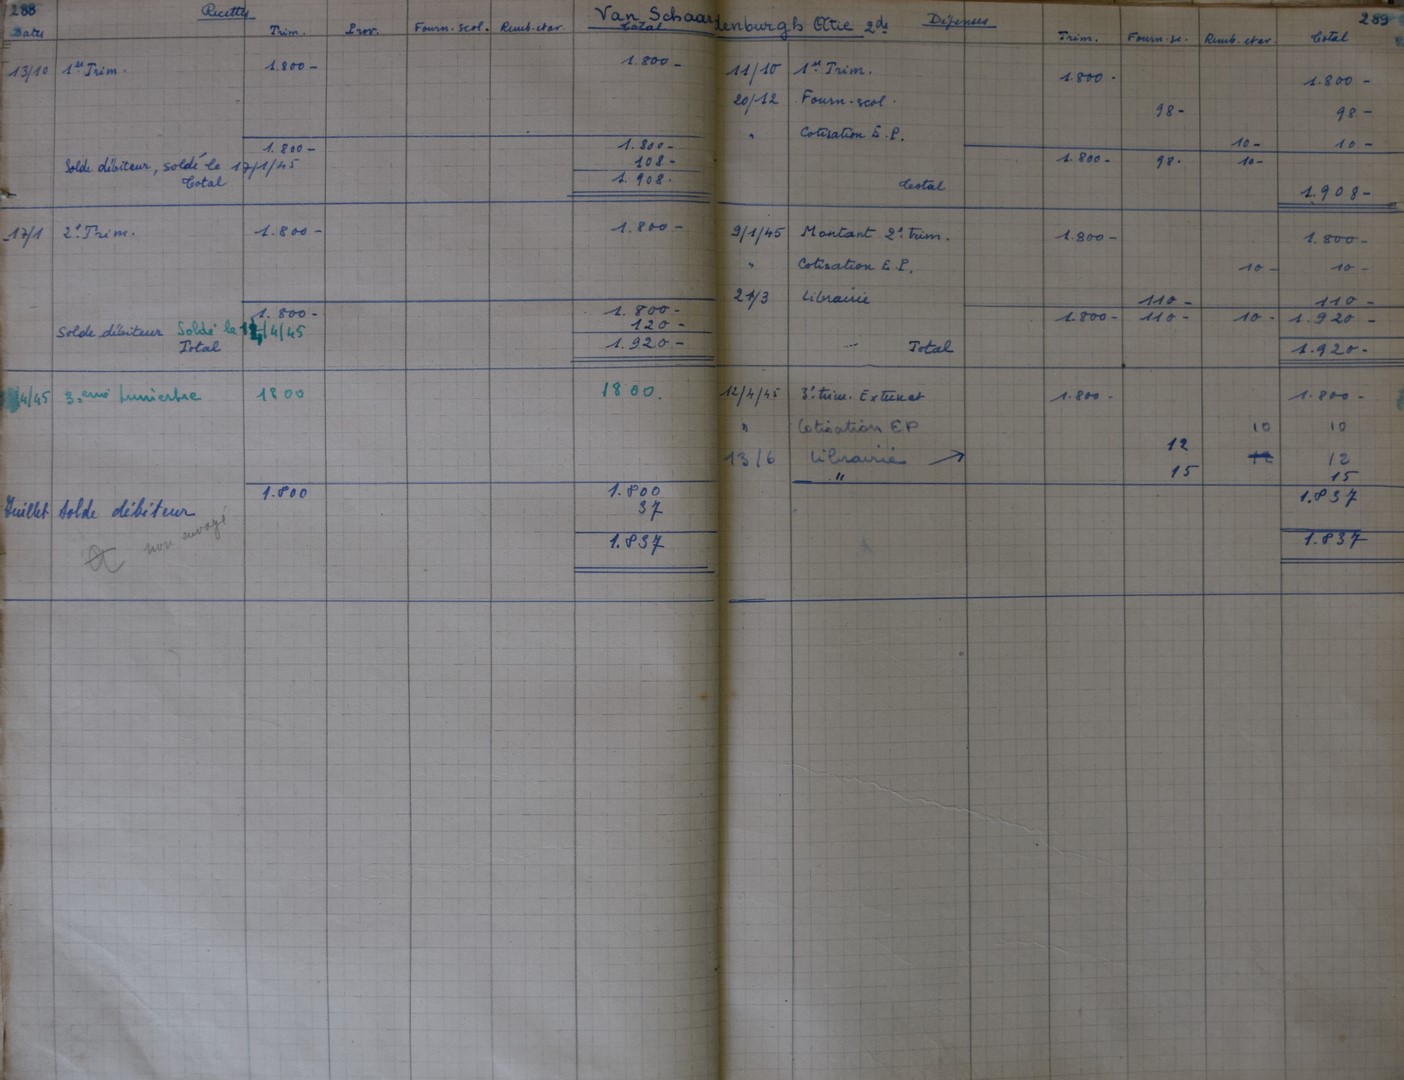 288 Recettes
Dates Trim. Prov. Fourn. scol. Remb. et av. Total
13/10 1er Trim. 1.800 - 1.800 -
1.800 - 1.800 -
Solde débiteur, soldé le 17/1/45 108 -
Total 1.908 -
17/1 2e Trim. 1.800 - 1.800 -
1.800 - 1.800 -
Solde débiteur Soldé le /4/45 120 -
Total 1.920 -
4/45 3 1800 1800.
1.800 1.800
Juillet Solde débiteur 37
non envoyé
1.837
Van Schaardenburgh 2de Dépenses 289
Trim. Fourn. sc. Remb. et av. Total
11/10 1er Trim. 1.800 - 1.800 -
20/12 Fourn. scol. 98 - 98 -
" Cotisation E.P. 10 - 10 -
1.800 - 98 - 10 -
Total 1.908 -
9/1/45 Montant 2e trim. 1.800 - 1.800 -
" Cotisation E.P. 10 - 10 -
21/3 Librairie 110 - 110 -
1.800 - 110 - 10 - 1.920 -
Total 1.920 -
12/4/45 3e trim. Externat 1.800 - 1.800 -
" Cotisation EP 10 10
13/6 Librairie 12 12 12
" 15 15
1.837
1.837